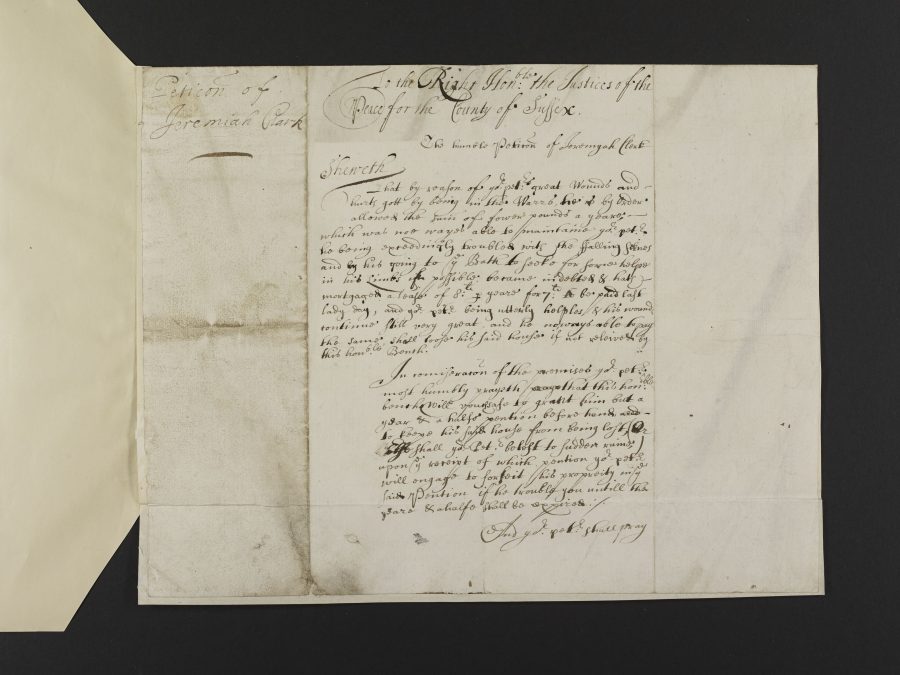 Peticōn of
Jeremiah Clark
To the Right Honble: the Justices of the
Peace for the County of Sussex.
The humble Peticōn of Jeremyah Clark
Sheweth
That by reason of yor petrs great Wounds and
hurts gott by being in the Warrs, he is by order
allowed the sum of fower pounds a yeare
which was noe wayes able to maintaine yor petr
he being exceedingly troubled with the ffalling
and by his going to ye Bath to seeke for some helpe
in his Limbs if possible became indebted & hath
mortgaged a lease of 8li p yeare for 7li to be paid last
lady day, and yor petr being utterly helples & his wound
continue still very great and he noewayes able to pay
the same shall loose his said house if not releived by
this honble Bench.
In comiseracōn of the premises yor petr
most humbly prayeth that this honble
bench will vouchsafe to grant him but a
year & a halfe pention before hand
to keepe his said house from being lost Or
else shall yor Petr be lost to sudden ruine
upon ye receipt of which pention yor petr
will engage to forfeit his propriety in ye
said Pention if he trouble you untill the
yeare & a halfe shall be expired
And yor petr shall pray